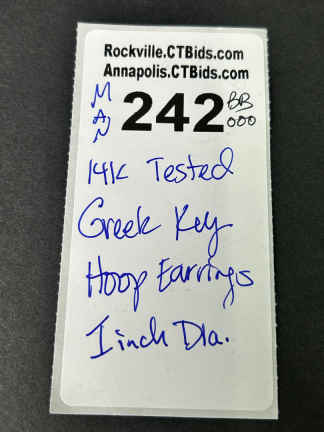 Rockville.CTBids.com
Annapolis.CTBids.com
MAN 242 BB
000
14K Tested
Greek Key
Hoop Earrings
1 inch Dia.